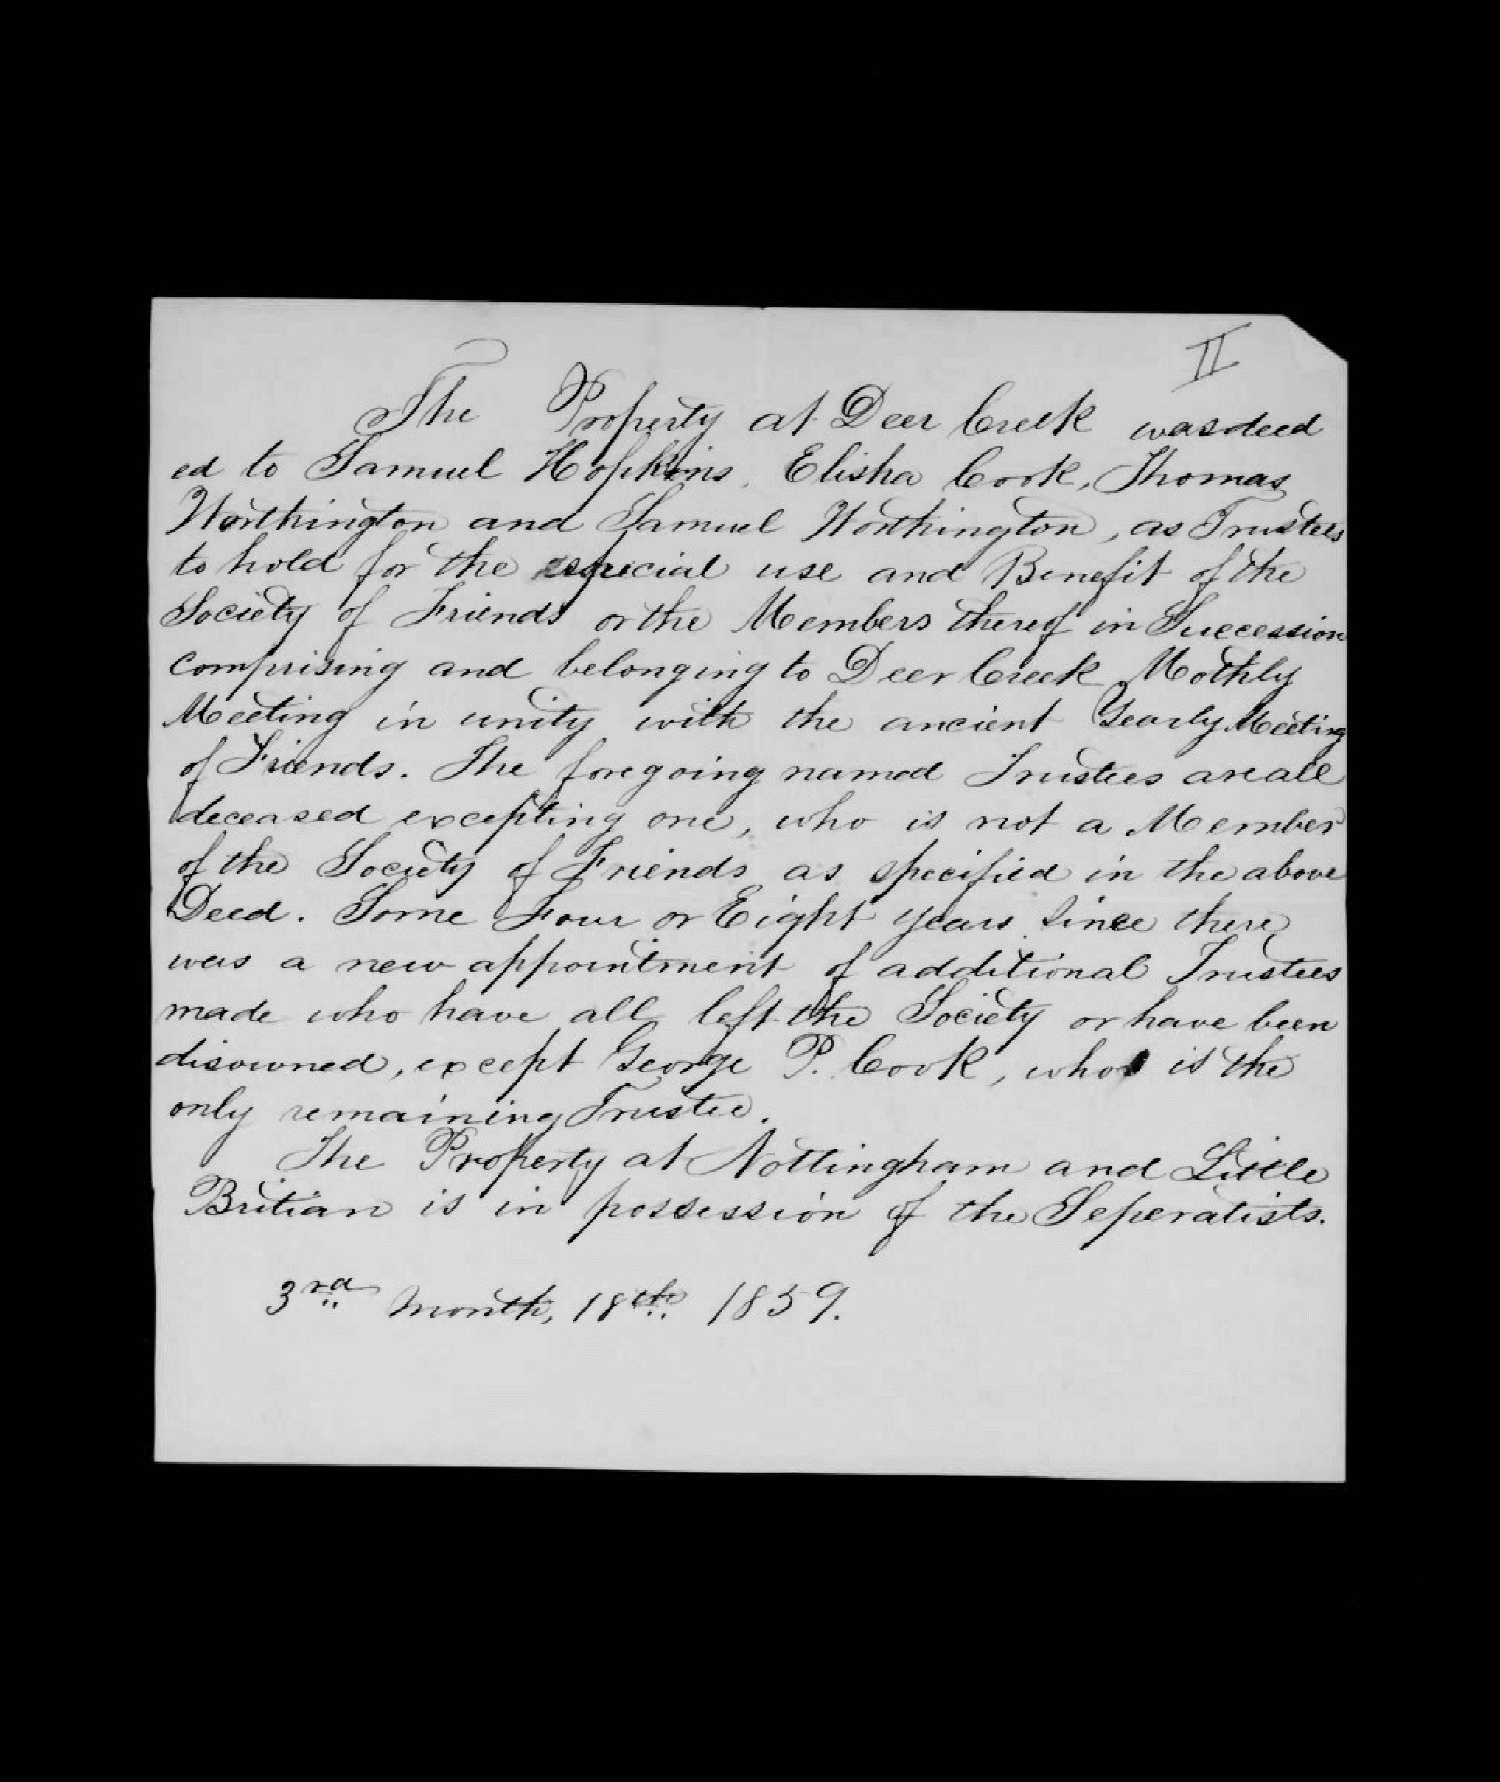 II
The Property at Deer Creek was deed
ed to Samuel Hopkins, Elisha Cook, Thomas
Worthington and Samuel Worthington, as Trustees
to hold for the especial use and Benefit of the
Society of Friends or the Members thereof in Succession
comprising and belonging to Deer Creek Mothly
Meeting in unity with the ancient Yearly Meeting
of Friends. The foregoing named Trustees are all
deceased excepting one, who is not a Member
of the Society of Friends as specified in the above
Deed. Some Four or Eight years since there
was a new appointment of additional Trustees
made who have all left the Society or have been
disowned, except George P. Cook, who is the
only remaining Trustee.
The Property at Nottingham and Little
Britian is in possession of the Seperatists.
3rd Month, 18th 1859.